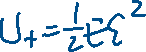 U₊ = ½ Eε²